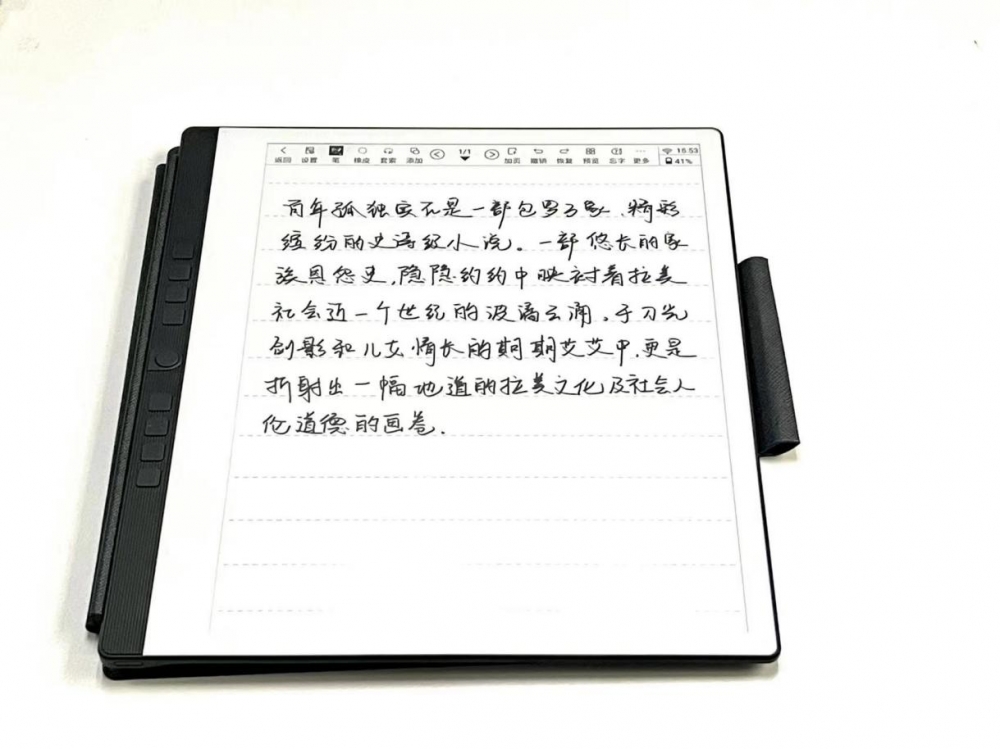 返回 设置 笔 橡皮 套索 添加 1/1 加页 撤销 恢复 预览 忘字 更多 15:53 41%
百年孤独应不是一部包罗万象、精彩
缤纷的史诗级小说。一部悠长的家
族恩怨史,隐隐约约中映衬着拉美
社会近一个世纪的波谲云涌。于刀光
剑影和儿女情长的期期艾艾中,更是
折射出一幅地道的拉美文化及社会人
伦道德的画卷.